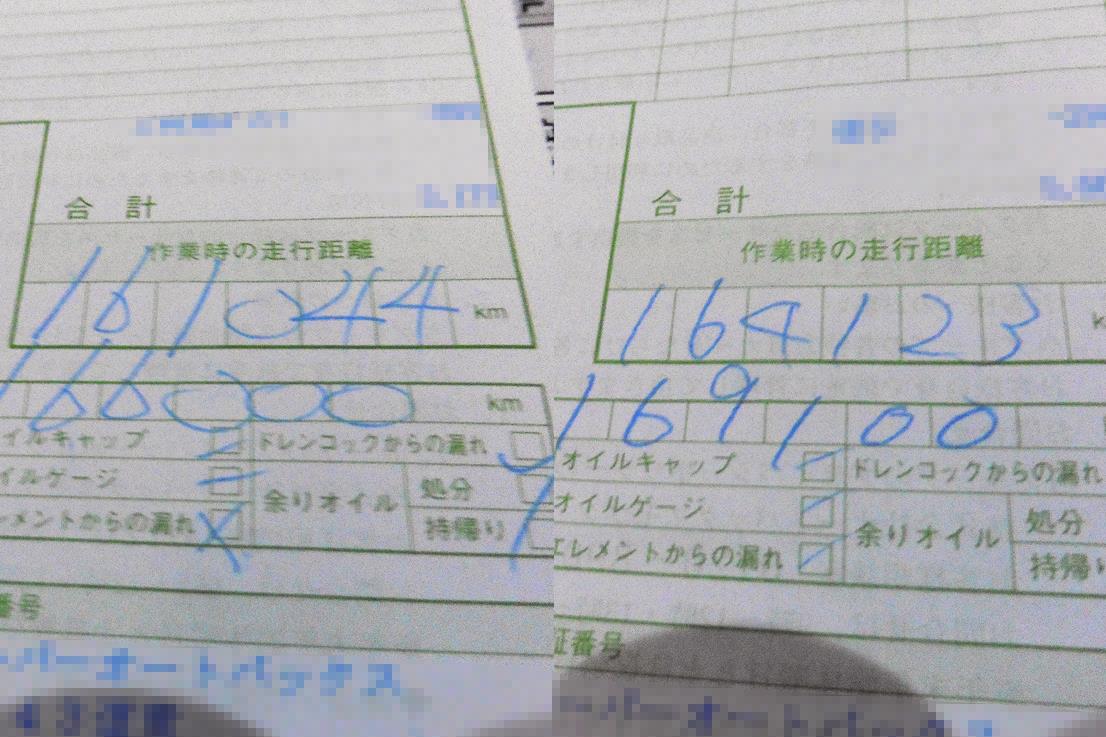 合計
作業時の走行距離
161044 km
166000 km
イルキャップ ドレンコックからの漏れ
イルゲージ 余りオイル 処分
レメントからの漏れ 持帰り
番号
ーパーオートバックス
合計
作業時の走行距離
164123
169100
オイルキャップ ドレンコックからの漏れ
オイルゲージ 余りオイル 処分
エレメントからの漏れ 持帰り
証番号
ーパーオートバック